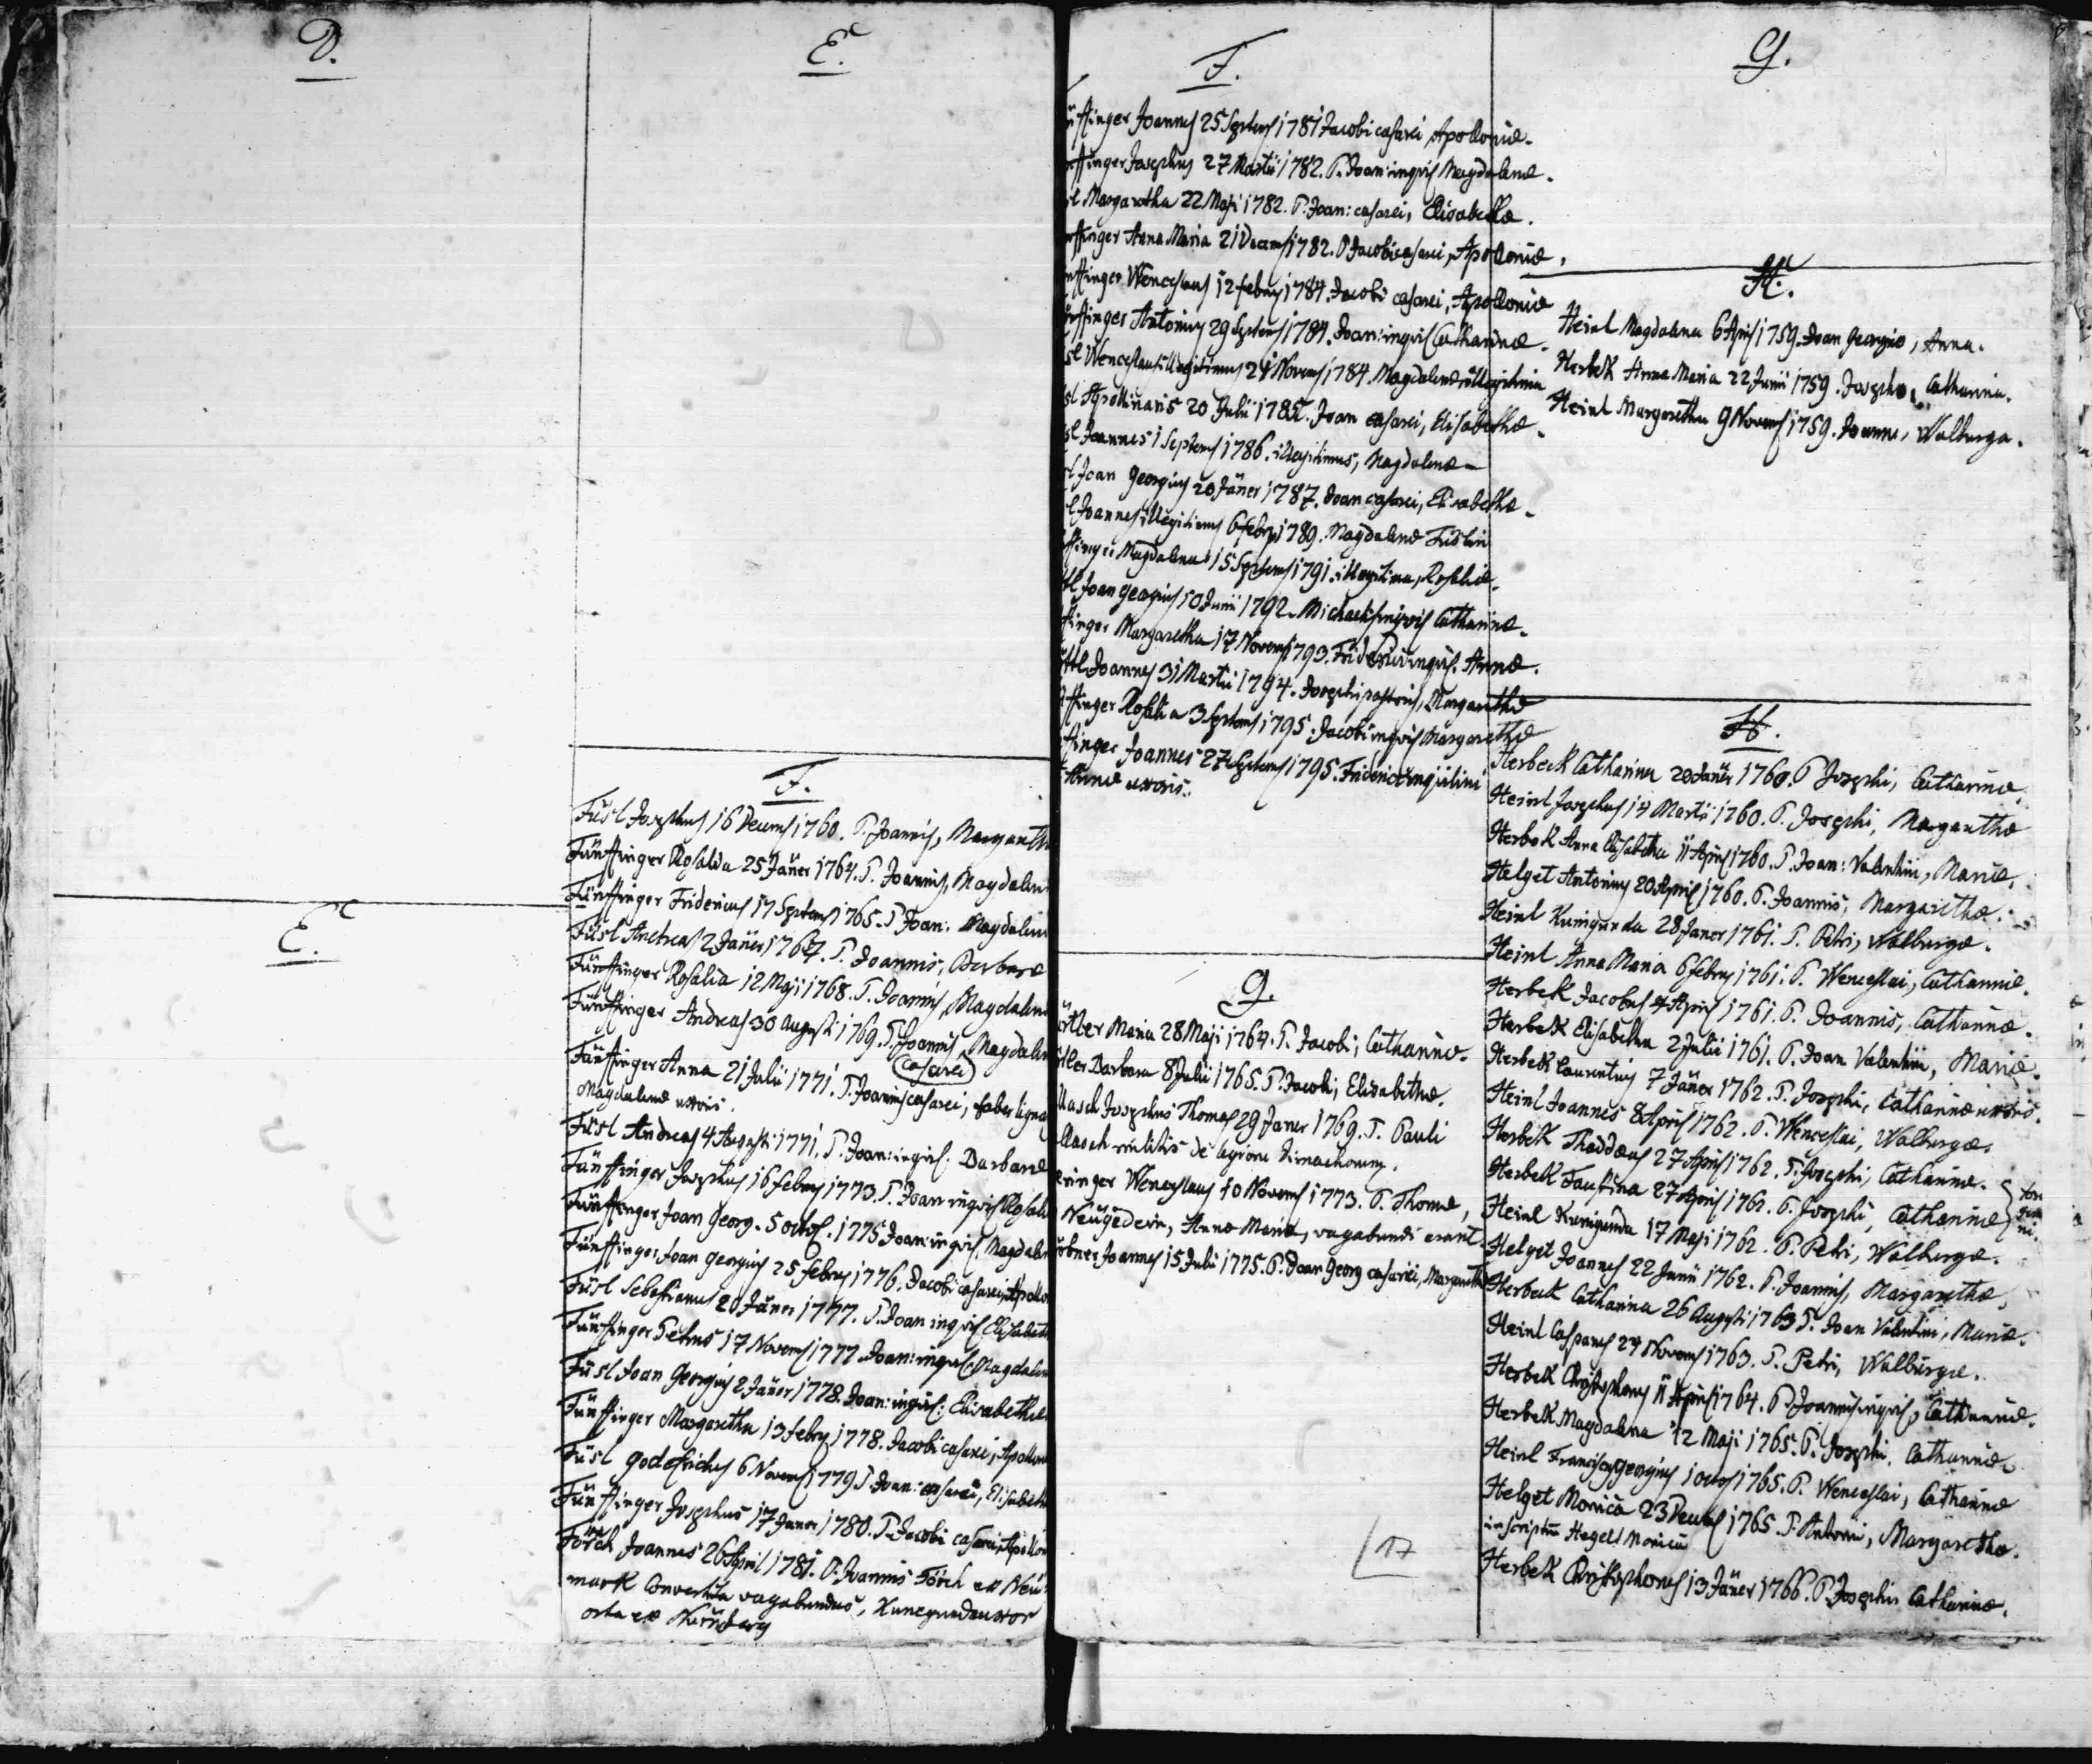 D.
E.
E.
F.
Füsl Josephus 16 Decemb 1760. P. Joannis, Margareth
Fünffinger Rosalia 25 Jäner 1764. P. Joannis, Magdalen
Fünffinger Fridericus 17 Septemb 1765. P. Joan: Magdalen
Füsl Andreas 2 Jäner 1767. P. Joannis, Barbaræ
Fünffinger Rosalia 12 Maji 1768. P. Joannis, Magdalen
Fünffinger Andreas 30 August: 1769. P. Joannis Magdalen
casarei
Fünffinger Anna 21 Julii 1771. P. Joannis casarei, faber lignar
Magdalenæ uxoris.
Füsl Andreas 4 August: 1771. P. Joan: inqvil: Barbaræ
Fünffinger Josephus 16 febru 1773. P. Joan inqvil Rosali
Fünffinger Joan Georg. 5 octob. 1775 Joan: inqvil. Magdalen
Fünffinger Joan georgius 25 febru 1776. Jacobi casarei, Apollon
Füsl Sebastianus 20 Jäner 1777. P. Joan inqvil Elisabeth
Fünffinger Petrus 17 Novemb 1777. Joan: inqvil. Magdalen
Füsl Joan Georgius 2 Jäner 1778. Joan: inqvil: Elisabethæ
Fünffinger Margaretha 13 febru 1778. Jacobi casarei, Apollon
Füsl godefridus 6 Novemb 1779 P. Joan: casarei, Elisabeth
Fünffinger Josephus 17 Janer 1780. P. Jacobi casarei, Apollon
Förch Joannes 26 April 1781. P. Joannis Förch ex Neu
mark Conversus vagabundus, Kunegunda uxor
orta ex Nürnberg
F.
ünffinger Joannes 25 Septemb 1781 Jacobi casarei Apolloniæ.
nffinger Josephus 27 Martii 1782. P. Joan: inqvil Magdalenæ.
l Margaretha 22 Maji 1782. P. Joan: casarei, Elisabethæ.
nffinger Anna Maria 21 Decemb 1782. P. Jacobi casarei, Apoloniæ.
nffinger Wenceslaus 12 febru 1784. Jacobi casarei, Apolloniæ
nffinger Antonius 29 Septemb 1784. Joan: inqvil Catharinæ.
sl Wenceslaus illegitimus 24 Novemb 1784. Magdalenæ illegitima
sl Apollinaris 20 Julii 1785. Joan casarei, Elisabethæ.
sl Joannes 1 Septemb 1786. illegitimus, Magdalenæ
l Joan Georgius 20 Jäner 1787. Joan casarei, Elisabethæ.
l Joannes illegitimus 6 febru 1789. Magdalenæ
ffinger Magdalena 15 Septemb 1791. illegitima, Rosaliæ.
tl Joan georgius 10 Junii 1792. Michaelis inqvil Catharinæ.
ffinger Margaretha 17 Novemb 1793. Friderici inqvil. Annæ.
ttl Joannes 31 Martii 1794. Josephi pastoris, Margarethæ
ffinger Rosalia 3 Septemb 1795. Jacobi inqvil Margarethæ
ffinger Joannes 27 Septemb 1795. Friderici inqvilini
Annæ uxoris.
G.
ärtler Maria 28 Maji 1764. P. Jacobi, Catharinæ.
rtler Barbara 8 Julii 1765. P. Jacobi, Elisabethæ.
llasch Josephus Thomas 29 Janer 1769. P. Pauli
llasch militis de legione
eringer Wenceslaus 10 Novemb 1773. P. Thomæ,
Neügederin, Annæ Mariæ, vagabundi erant.
öbner Joannes 15 Julii 1775. P. Joan Georg casarei, Margareth
17
G.
H.
Heinl Magdalena 6 April 1759. Joan Georgio, Anna.
Herbek Anna Maria 22 Junii 1759. Josepho, Catharina.
Heinl Margaretha 9 Novemb 1759. Joanne, Walburga.
H.
Herbeck Catharina 20 Janer 1760. P. Josephi, Catharinæ.
Heinl Josephus 14 Martii 1760. P. Josephi, Margarethæ
Herbek Anna Elisabetha 11 April 1760. P. Joan: Valentini, Mariæ.
Helget Antonius 20 April 1760. P. Joannis, Margarethæ.
Heinl Kunigunda 28 Janer 1761. P. Petri, Walburgæ.
Heinl Anna Maria 6 febru 1761. P. Wenceslai, Catharinæ.
Herbek Jacobus 4 April 1761. P. Joannis, Catharinæ.
Herbek Elisabetha 2 Julii 1761. P. Joan Valentini, Mariæ.
Herbek Laurentius 7 Jäner 1762. P. Josephi, Catharinæ uxoris.
Heinl Joannes 8 April 1762. P. Wenceslai, Walburgæ.
Herbek Thaddæus 27 April 1762. P. Josephi, Catharinæ.
Herbek Faustina 27 April 1762. P. Josephi, Catharinæ
Heinl Kunigunda 17 Maji 1762. P. Petri, Walburgæ.
Helget Joannes 22 Junii 1762. P. Joannis, Margarethæ.
Herbek Catharina 26 August: 1763 P. Joan Valentini, Mariæ.
Heinl Casparus 24 Novemb 1763. P. Petri, Walburgæ.
Herbek Christophorus 11 April 1764. P. Joannis inqvil, Catharinæ.
Herbek Magdalena 12 Maji 1765. P. Josephi, Catharinæ.
Heinl Franciscus georgius 1 octob 1765. P. Wenceslai, Catharinæ
Helget Monica 23 Decemb 1765. P. Antonii, Margarethæ.
inscriptu Hegel Monicæ
Herbek Christophorus 13 Jäner 1766. P. Josephi Catharinæ.